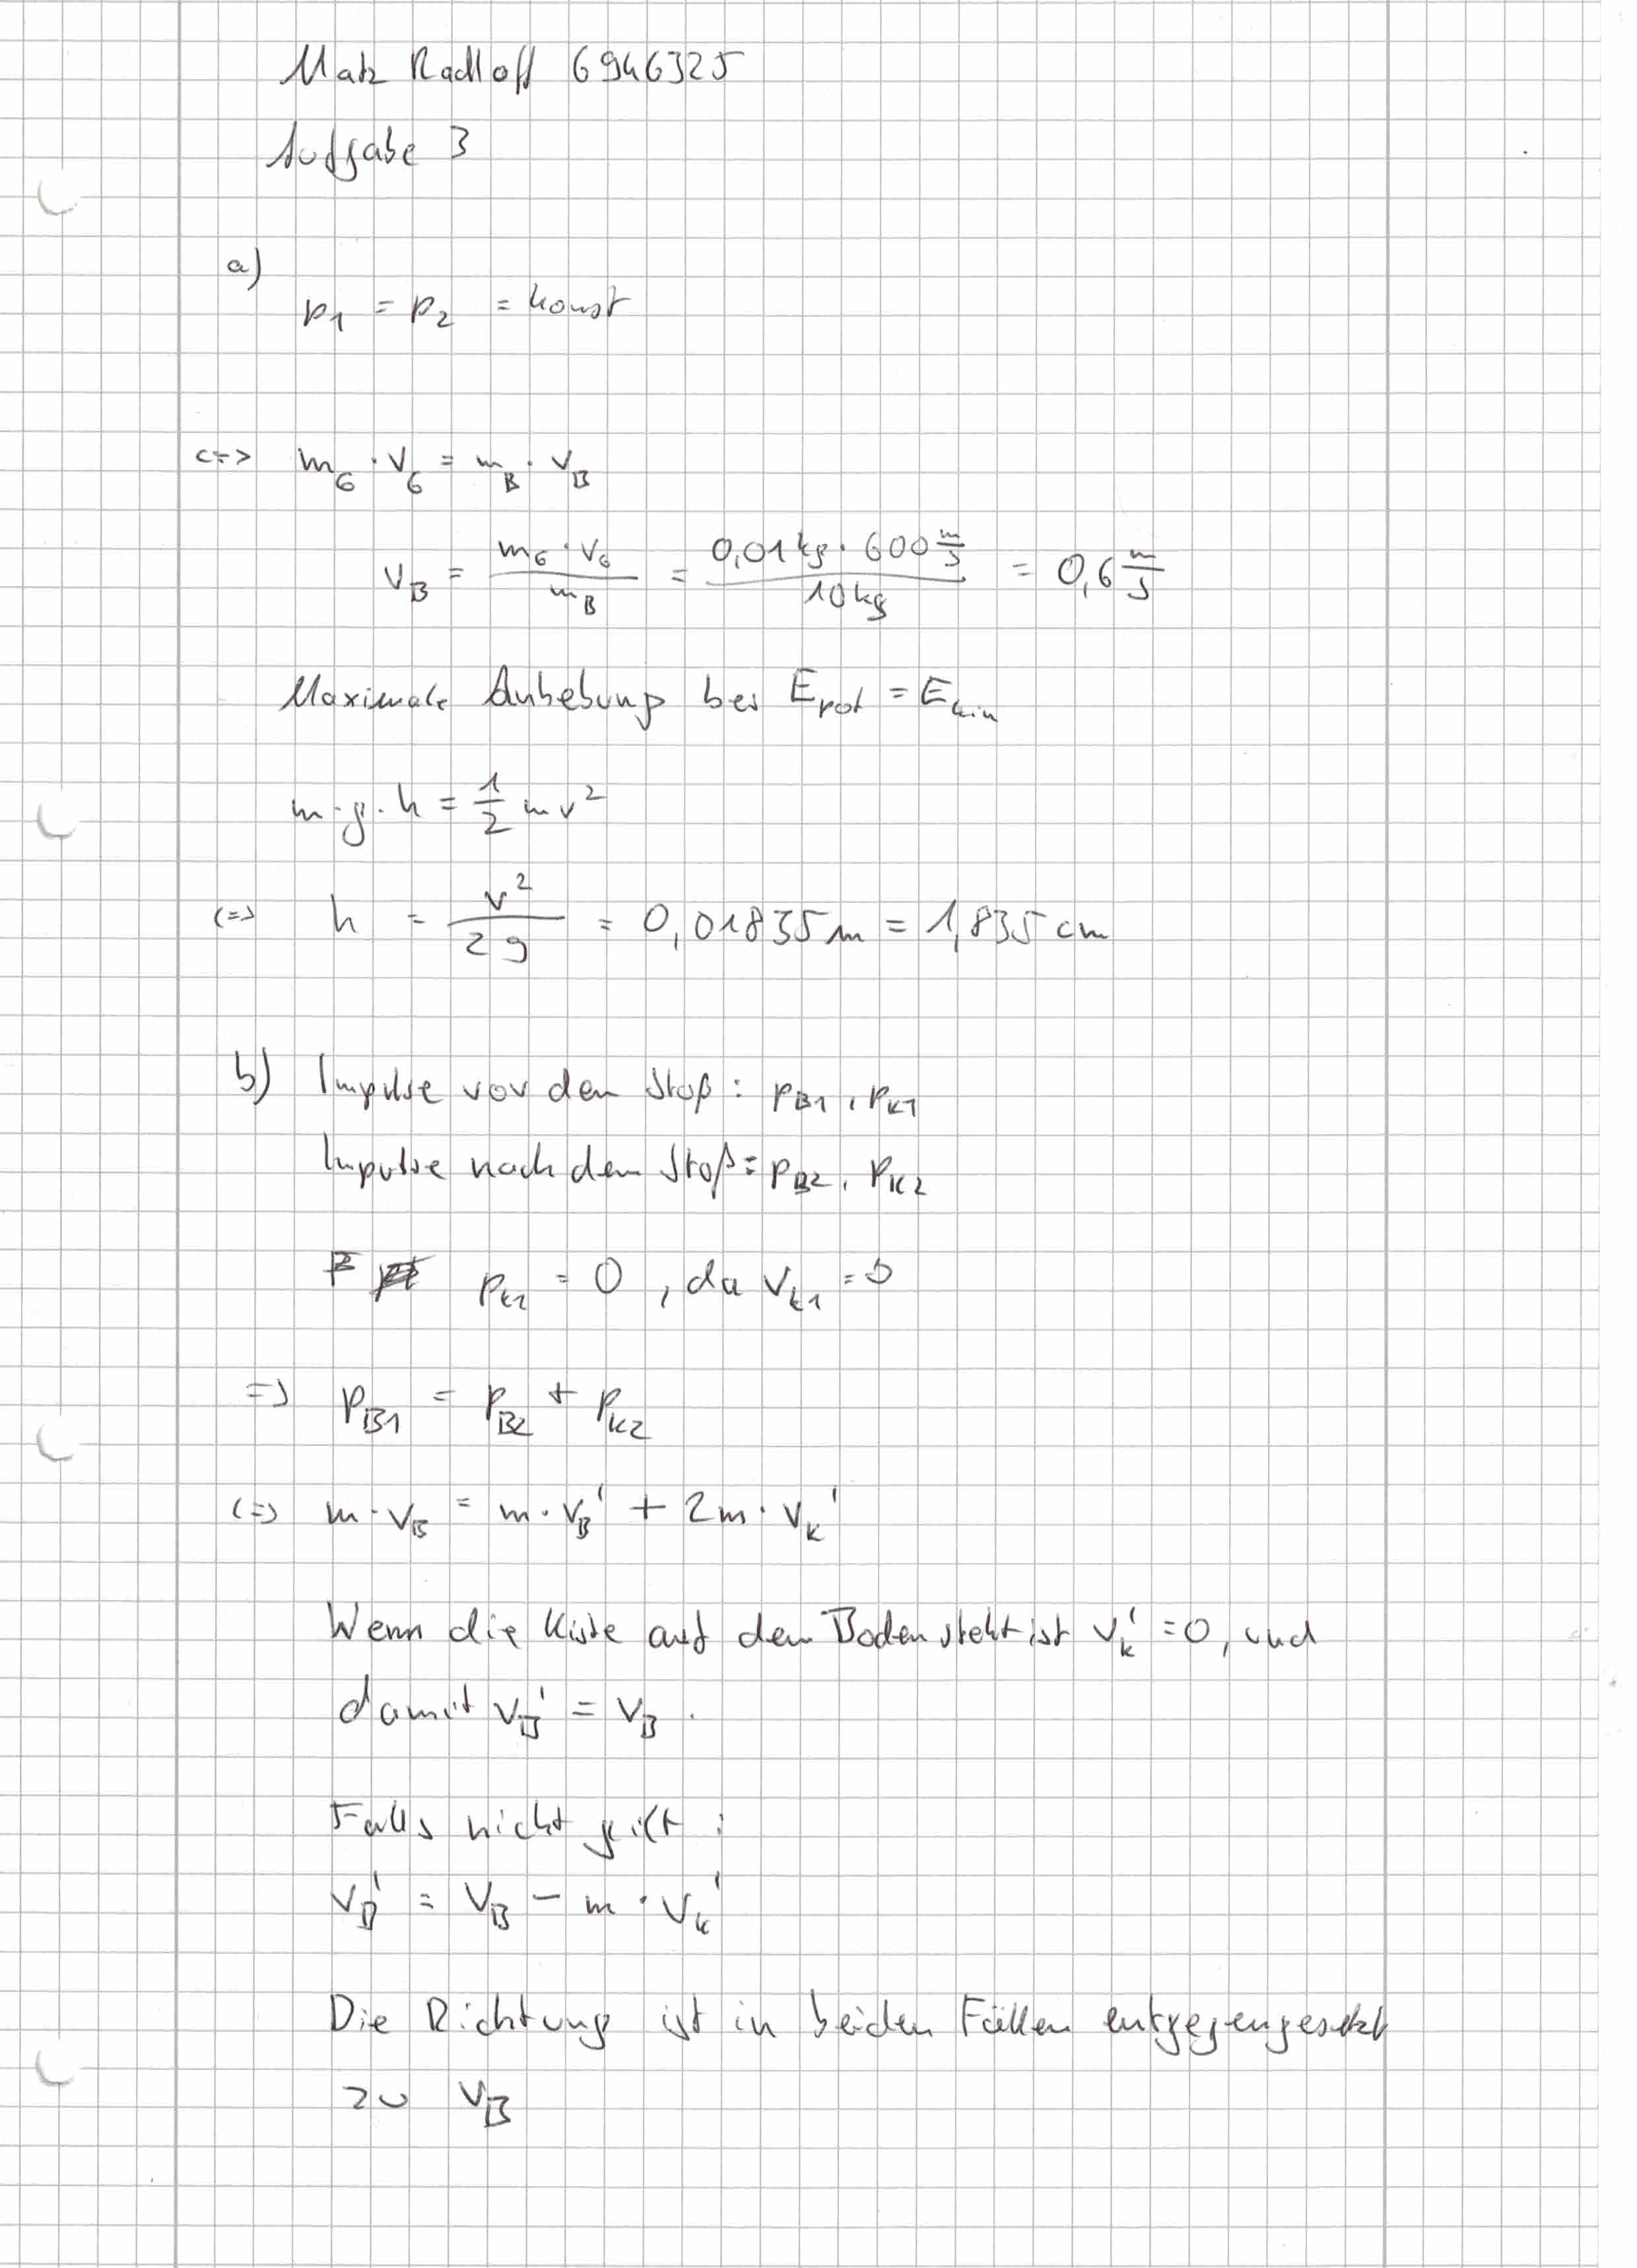 Matz Radloff 6946325
Aufgabe 3
a)
p₁ = p₂ = konst
<=> m_G · v_G = m_B · v_B
v_B = (m_G · v_G)/(m_B) = (0,01 kg · 600 m/s)/(10 kg) = 0,6 m/s
Maximale Anhebung bei E_pot = E_kin
m · g · h = 1/2 m v²
(=> h = v²/(2 g) = 0,01835 m = 1,835 cm
b) Impulse vor dem Stoß: p_B1, p_K1
Impulse nach dem Stoß: p_B2, p_K2
p_K1 = 0, da v_K1 = 0
=> p_B1 = p_B2 + p_K2
(=> m · v_B = m · v_B' + 2m · v_K'
Wenn die Kiste auf dem Boden steht ist v_K' = 0, und
damit v_B' = v_B.
Falls nicht gilt:
v_B' = v_B − m · v_K'
Die Richtung ist in beiden Fällen entgegengesetzt
zu v_B